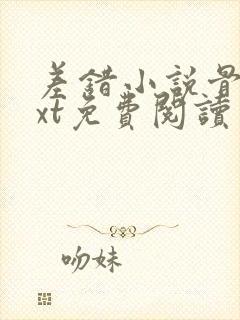 差錯小說骨
xt免費閱讀
吻妹